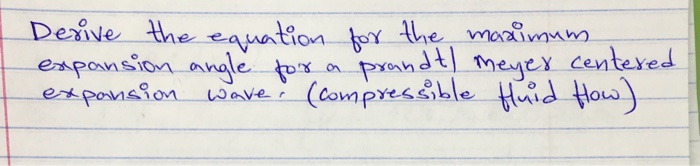 Derive the equation for the maximum
expansion angle for a prandtl meyer centered
expansion wave. (compressible fluid flow)